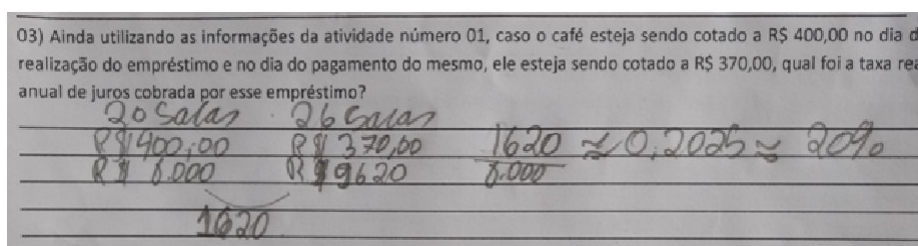 03) Ainda utilizando as informações da atividade número 01, caso o café esteja sendo cotado a R$ 400,00 no dia d
realização do empréstimo e no dia do pagamento do mesmo, ele esteja sendo cotado a R$ 370,00, qual foi a taxa rea
anual de juros cobrada por esse empréstimo?
20 Sacas 26 Sacas
R$ 400,00 R$ 370,00 1620 ≈ 0,2025 ≈ 20%
R$ 8.000 R$ 9620 8.000
1620